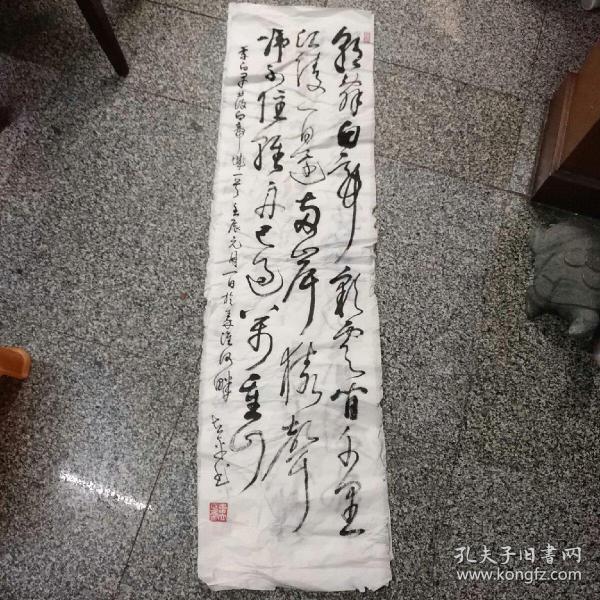 朝辞白帝彩云间千里
江陵一日还两岸猿声
啼不住轻舟已过万重山
李白早发白帝城一首 壬辰元月一日於秦淮河畔
书
孔夫子旧书网
www.kongfz.com